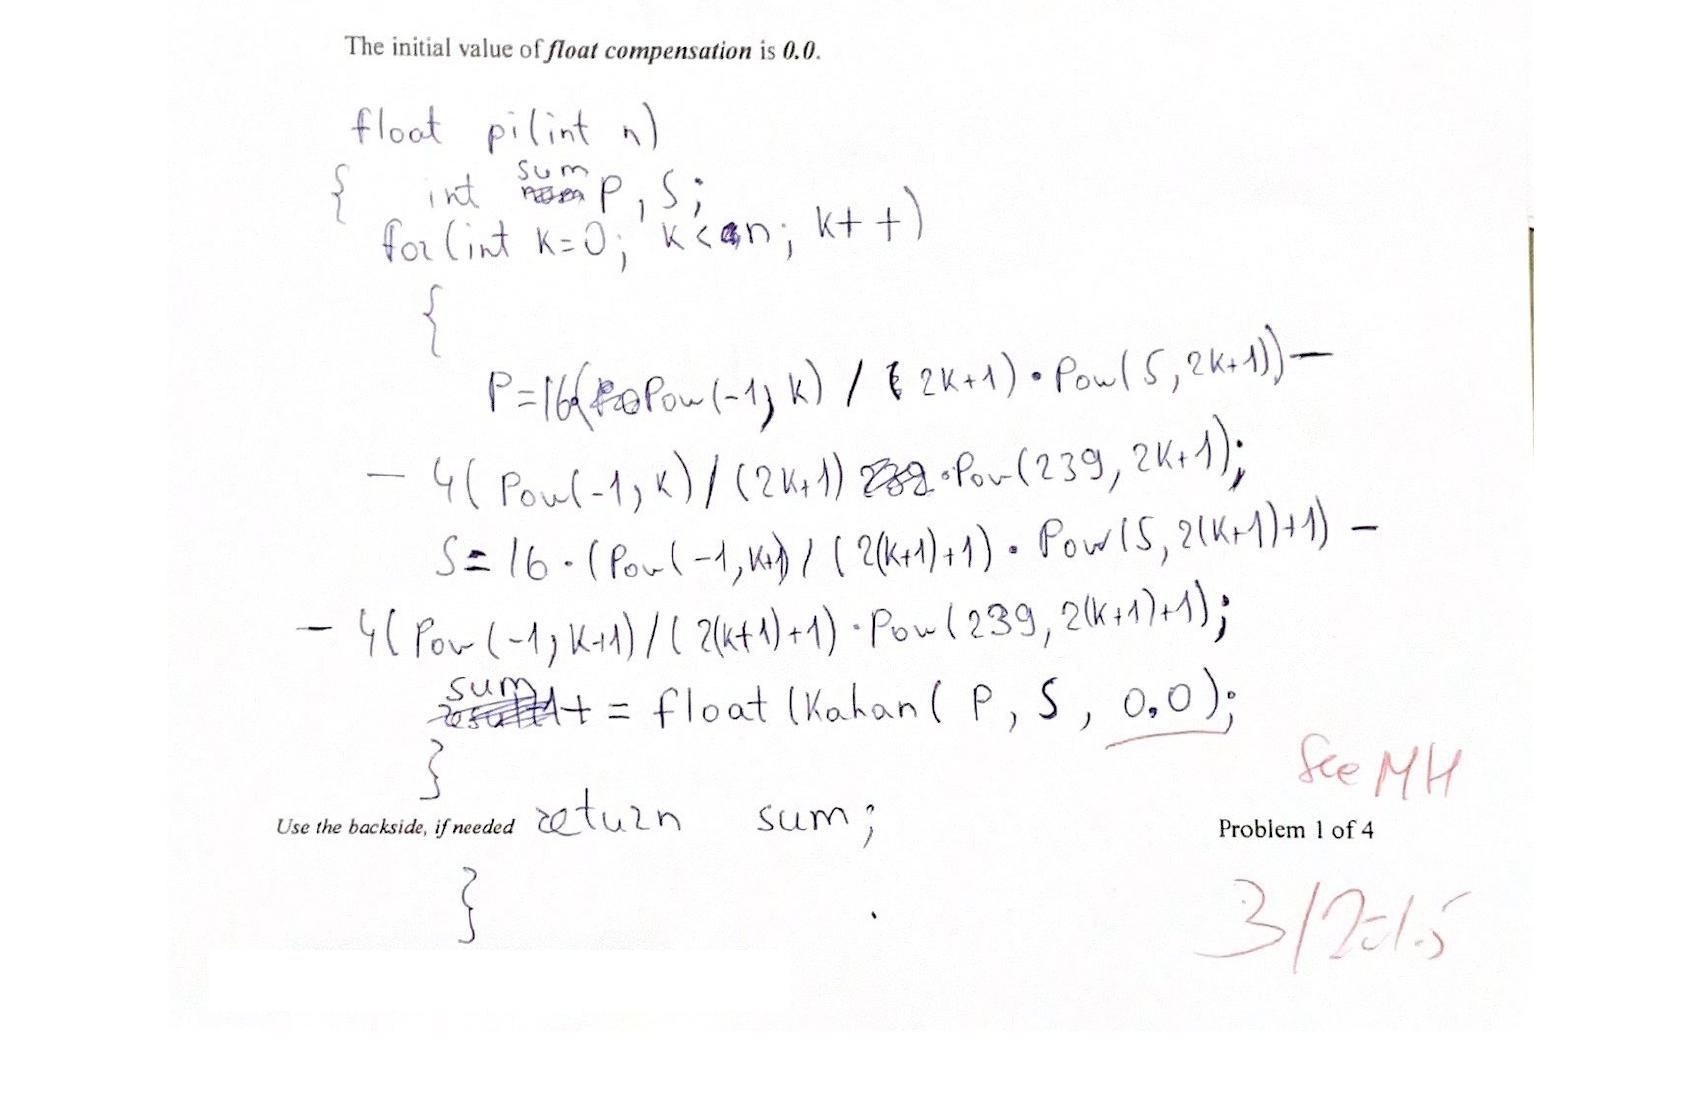 The initial value of float compensation is 0.0.
float pi(int n)
{ int sum P, S;
for(int k=0; k<n; k++)
{
P=16(Pow(-1, k) / (2k+1) • Pow(5, 2k+1)) —
— 4( Pow(-1, k) / (2k+1) • Pow(239, 2k+1);
S= 16 · (Pow(-1, k+1) / (2(k+1)+1) • Pow(5, 2(k+1)+1) –
– 4( Pow(-1, k+1) / (2(k+1)+1) · Pow(239, 2(k+1)+1);
sum += float (Kahan( P, S, 0,0);
}
See MH
Use the backside, if needed return sum; Problem 1 of 4
}